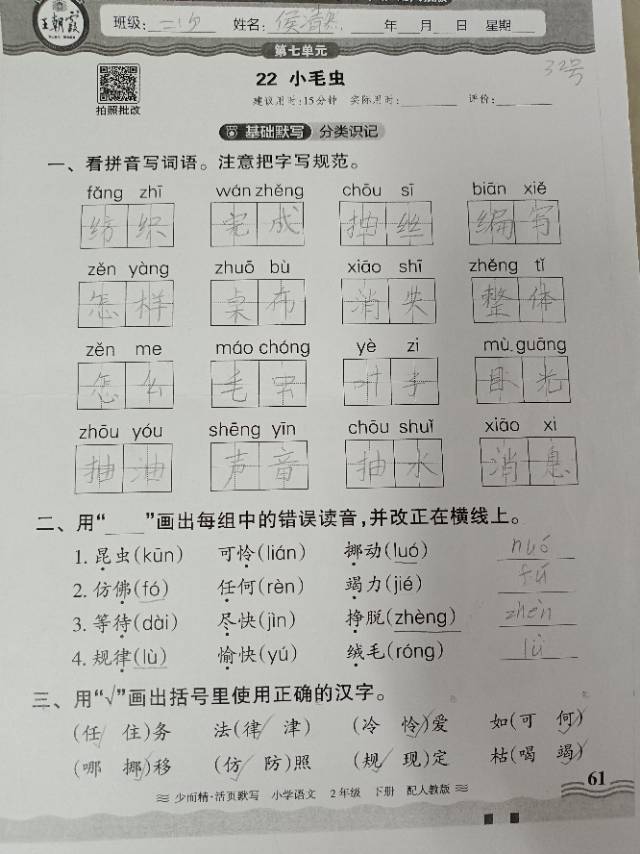 王朝霞 班级: 二(5) 姓名: 侯 年 月 日 星期
第七单元
拍照批改
22 小毛虫
32号
建议用时:15分钟 实际用时: 评价:
基础默写 分类识记
一、看拼音写词语。注意把字写规范。
fǎng zhī wán zhěng chōu sī biān xiě
纺织 完成 抽丝 编写
zěn yàng zhuō bù xiāo shī zhěng tǐ
怎样 桌布 消失 整体
zěn me máo chóng yè zi mù guāng
怎么 毛虫 叶子 目光
zhōu yóu shēng yīn chōu shuǐ xiāo xi
抽油 声音 抽水 消息
二、用“ ”画出每组中的错误读音,并改正在横线上。
1. 昆虫(kūn) 可怜(lián) 挪动(luó) nuó
2. 仿佛(fó) 任何(rèn) 竭力(jié) fú
3. 等待(dài) 尽快(jìn) 挣脱(zhèng) zhèn
4. 规律(lù) 愉快(yú) 绒毛(róng) lǜ
三、用“√”画出括号里使用正确的汉字。
(任 住)务 法(律 津) (冷 怜)爱 如(可 何)
(哪 挪)移 (仿 防)照 (规 现)定 枯(喝 竭)
61
少而精·活页默写 小学语文 2年级 下册 配人教版